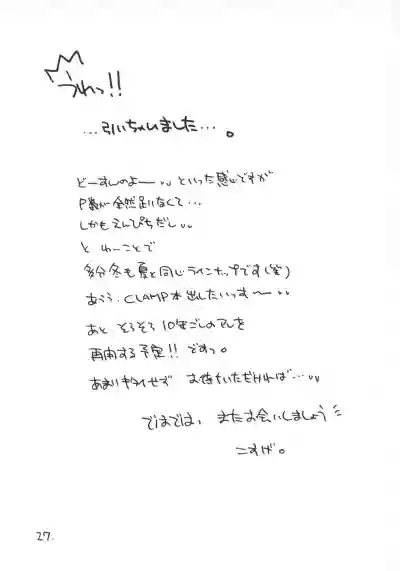 うわっ!!
…引いちゃいました…。
どーすんのよー〜いった感じですが
P数が全然足いなくて…
しかもえんぴちだし
と わーことで
多分冬も夏と同じラインナップです(笑)
あぅぅ. CLAMP本出したいっす〜
あと そろそろ10年ごしのアレを
再開する予定!! ですっ。
あまりキタイせず お待ちいただければ…
ではでは、またお会いしましょう
こすげ。
27.